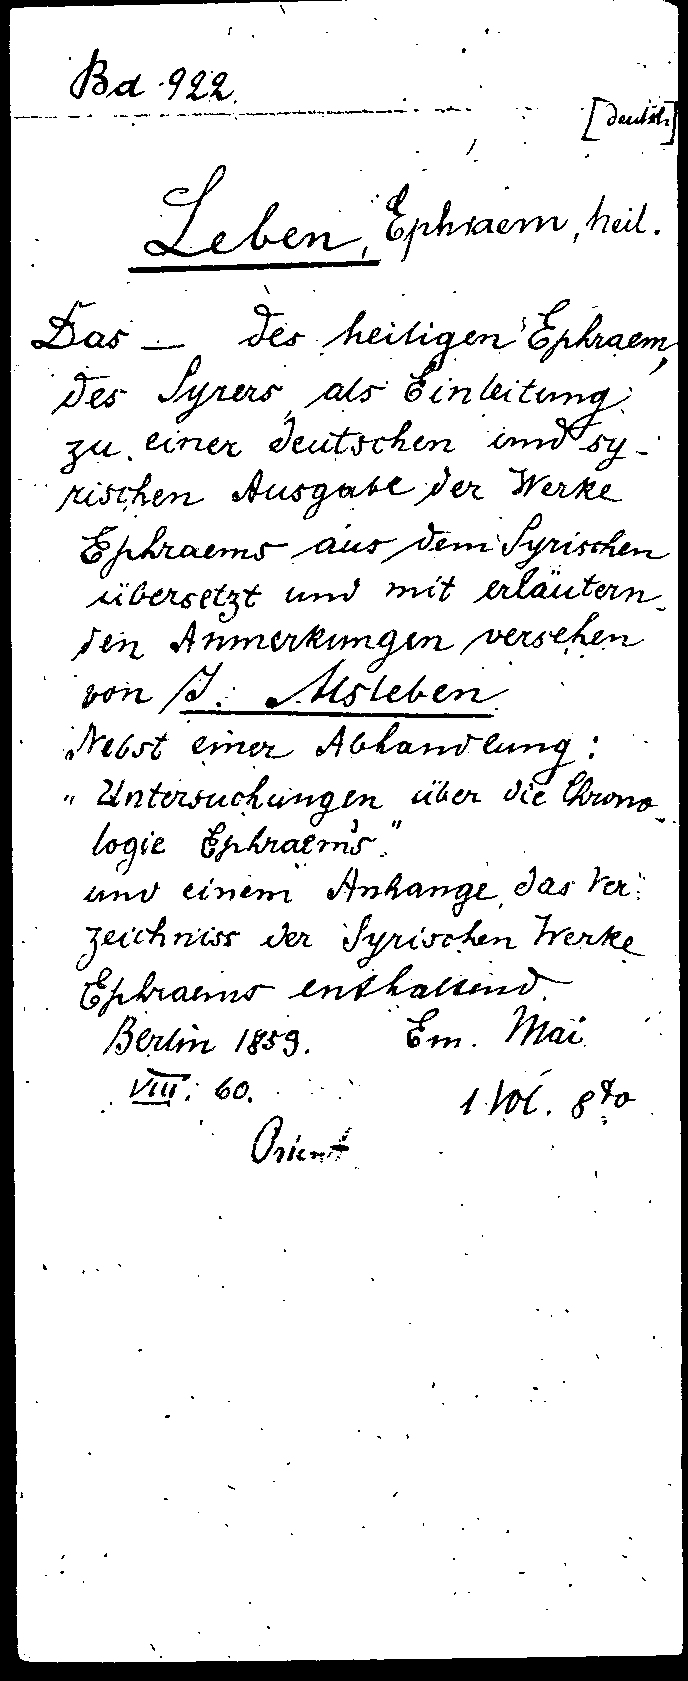 Bd 922.
[deutsch]
Leben, Ephraem, heil.
Das — des heiligen Ephraem,
des Syrers, als Einleitung
zu einer deutschen und sy-
rischen Ausgabe der Werke
Ephraems aus dem Syrischen
übersetzt und mit erläutern-
den Anmerkungen versehen
von J. Alsleben
Nebst einer Abhandlung:
"Untersuchungen über die Chrono-
logie Ephraem's."
und einem Anhange, das Ver-
zeichniss der Syrischen Werke
Ephraems enthaltend.
Berlin 1853. Em. Mai
VIII. 60. 1 Vol. 8to
Orient